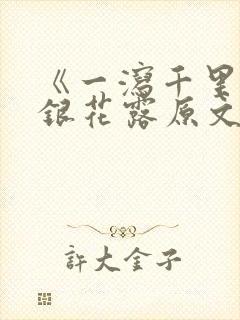 《一泻千里金
银花露原文
許大金子